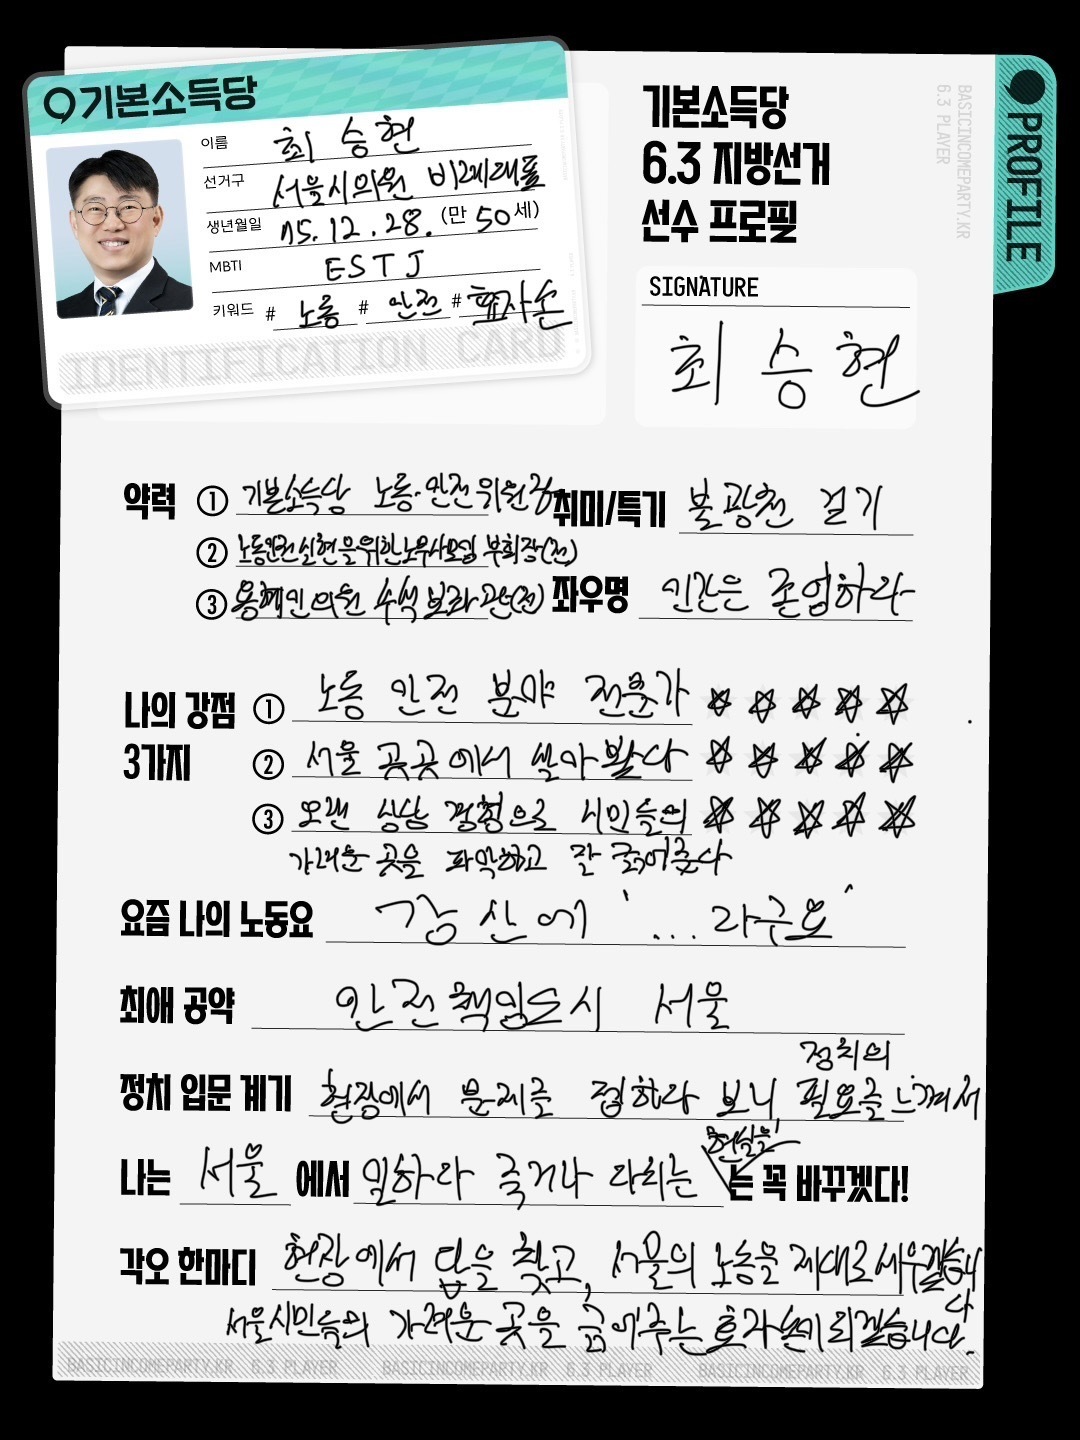 기본소득당
이름 최승현
선거구 서울시의원 비례대표
생년월일 75.12.28. (만 50세)
MBTI ESTJ
키워드 # 노동 # 안전 # 효자손
IDENTIFICATION CARD
기본소득당
6.3 지방선거
선수 프로필
SIGNATURE
최승현
PROFILE
BASICINCOMEPARTY.KR
6.3 PLAYER
약력 ① 기본소득당 노동·안전위원장
② 노동인권실현을위한노무사모임 부회장(전)
③ 용혜인의원 수석보좌관(전)
취미/특기 불광천 걷기
좌우명 인간은 존엄하다
나의 강점
3가지
① 노동 안전 분야 전문가
② 서울 곳곳에서 살아봤다
③ 오랜 상담 경험으로 시민들의
가려운 곳을 파악하고 잘 긁어준다
요즘 나의 노동요 강산에 '...라구요'
최애 공약 안전책임도시 서울
정치 입문 계기 현장에서 문제를 접하다 보니 정치의 필요를 느껴서
나는 서울에서 일하다 죽거나 다치는 현실을 는 꼭 바꾸겠다!
각오 한마디 현장에서 답을 찾고, 서울의 노동을 제대로 세우겠습니다
서울시민들의 가려운 곳을 긁어주는 효자손이 되겠습니다.
BASICINCOMEPARTY.KR 6.3 PLAYER BASICINCOMEPARTY.KR 6.3 PLAYER BASICINCOMEPARTY.KR 6.3 PLAYER